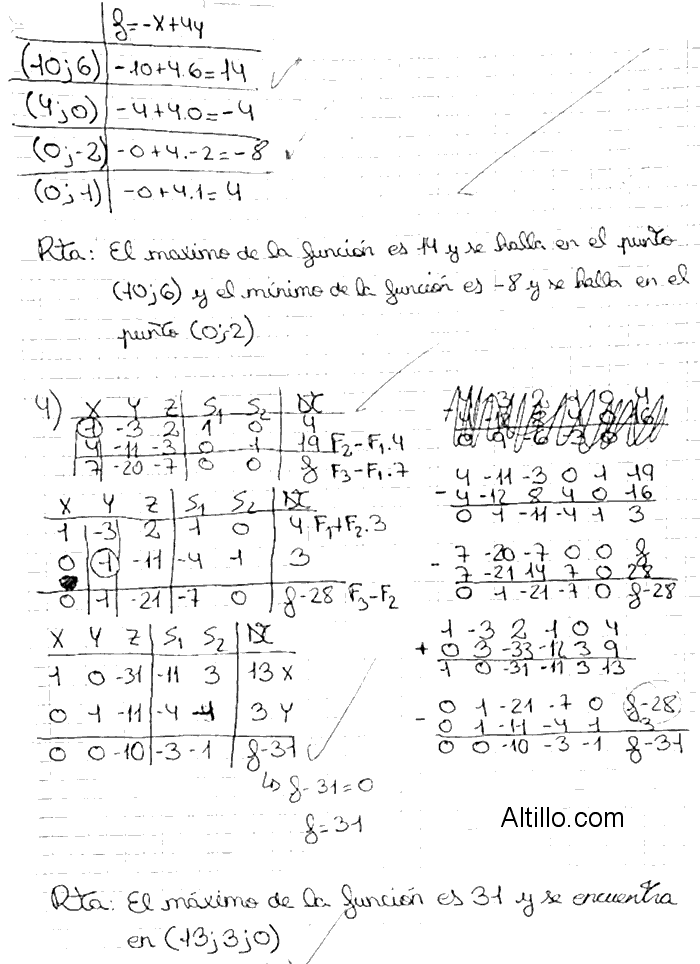 f=-x+4y
(10;6) -10+4.6=14
(4;0) -4+4.0=-4
(0;-2) -0+4.-2=-8
(0;1) -0+4.1=4
Rta: El maximo de la función es 14 y se halla en el punto
(10;6) y el mínimo de la función es -8 y se halla en el
punto (0;-2)
4) X Y Z S1 S2
1 -3 2 1 0 4
4 -11 -3 0 1 19 F2-F1.4
7 -20 -7 0 0 f F3-F1.7
X Y Z S1 S2
1 -3 2 1 0 4 F1+F2.3
0 1 -11 -4 1 3
0 1 -21 -7 0 f-28 F3-F2
X Y Z S1 S2
1 0 -31 -11 3 13 X
0 1 -11 -4 1 3 Y
0 0 -10 -3 -1 f-31
↳ f-31=0
f=31
4 -11 -3 0 1 19
- 4 -12 8 4 0 16
0 1 -11 -4 1 3
- 7 -20 -7 0 0 f
7 -21 14 7 0 28
0 1 -21 -7 0 f-28
1 -3 2 1 0 4
+ 0 3 -33 -12 3 9
1 0 -31 -11 3 13
- 0 1 -21 -7 0 f-28
0 1 -11 -4 1 3
0 0 -10 -3 -1 f-31
Altillo.com
Rta: El máximo de la función es 31 y se encuentra
en (13;3;0)